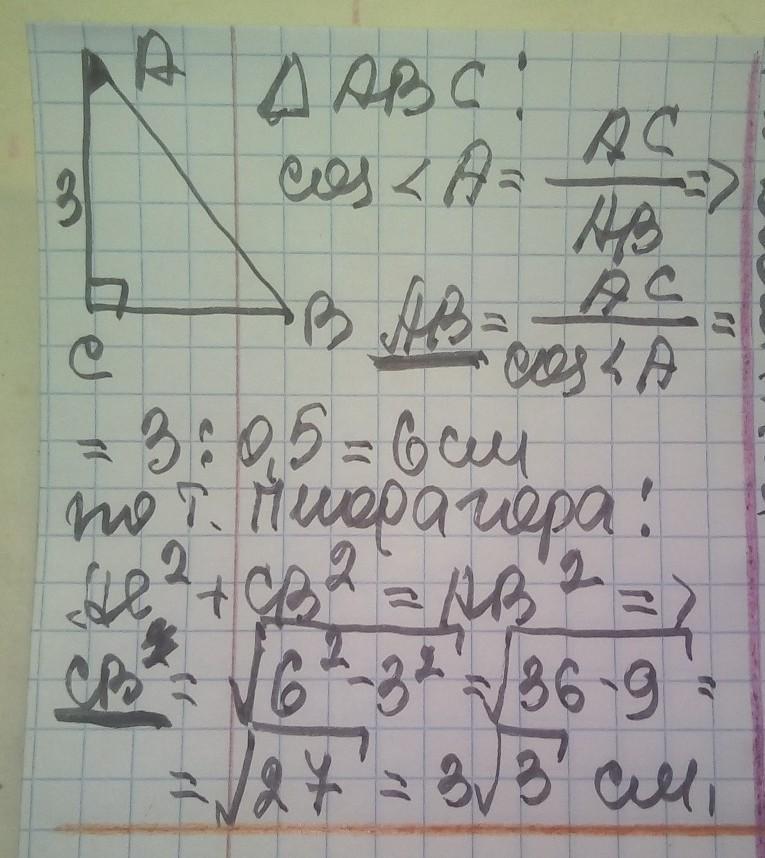 A
3
C
B
△ ABC:
cos < A = AC / AB =>
AB = AC / cos < A =
= 3 : 0,5 = 6 см
по т. Пифагора:
AC² + CB² = AB² =>
CB = √6² - 3² = √36 - 9 =
= √27 = 3√3 см.